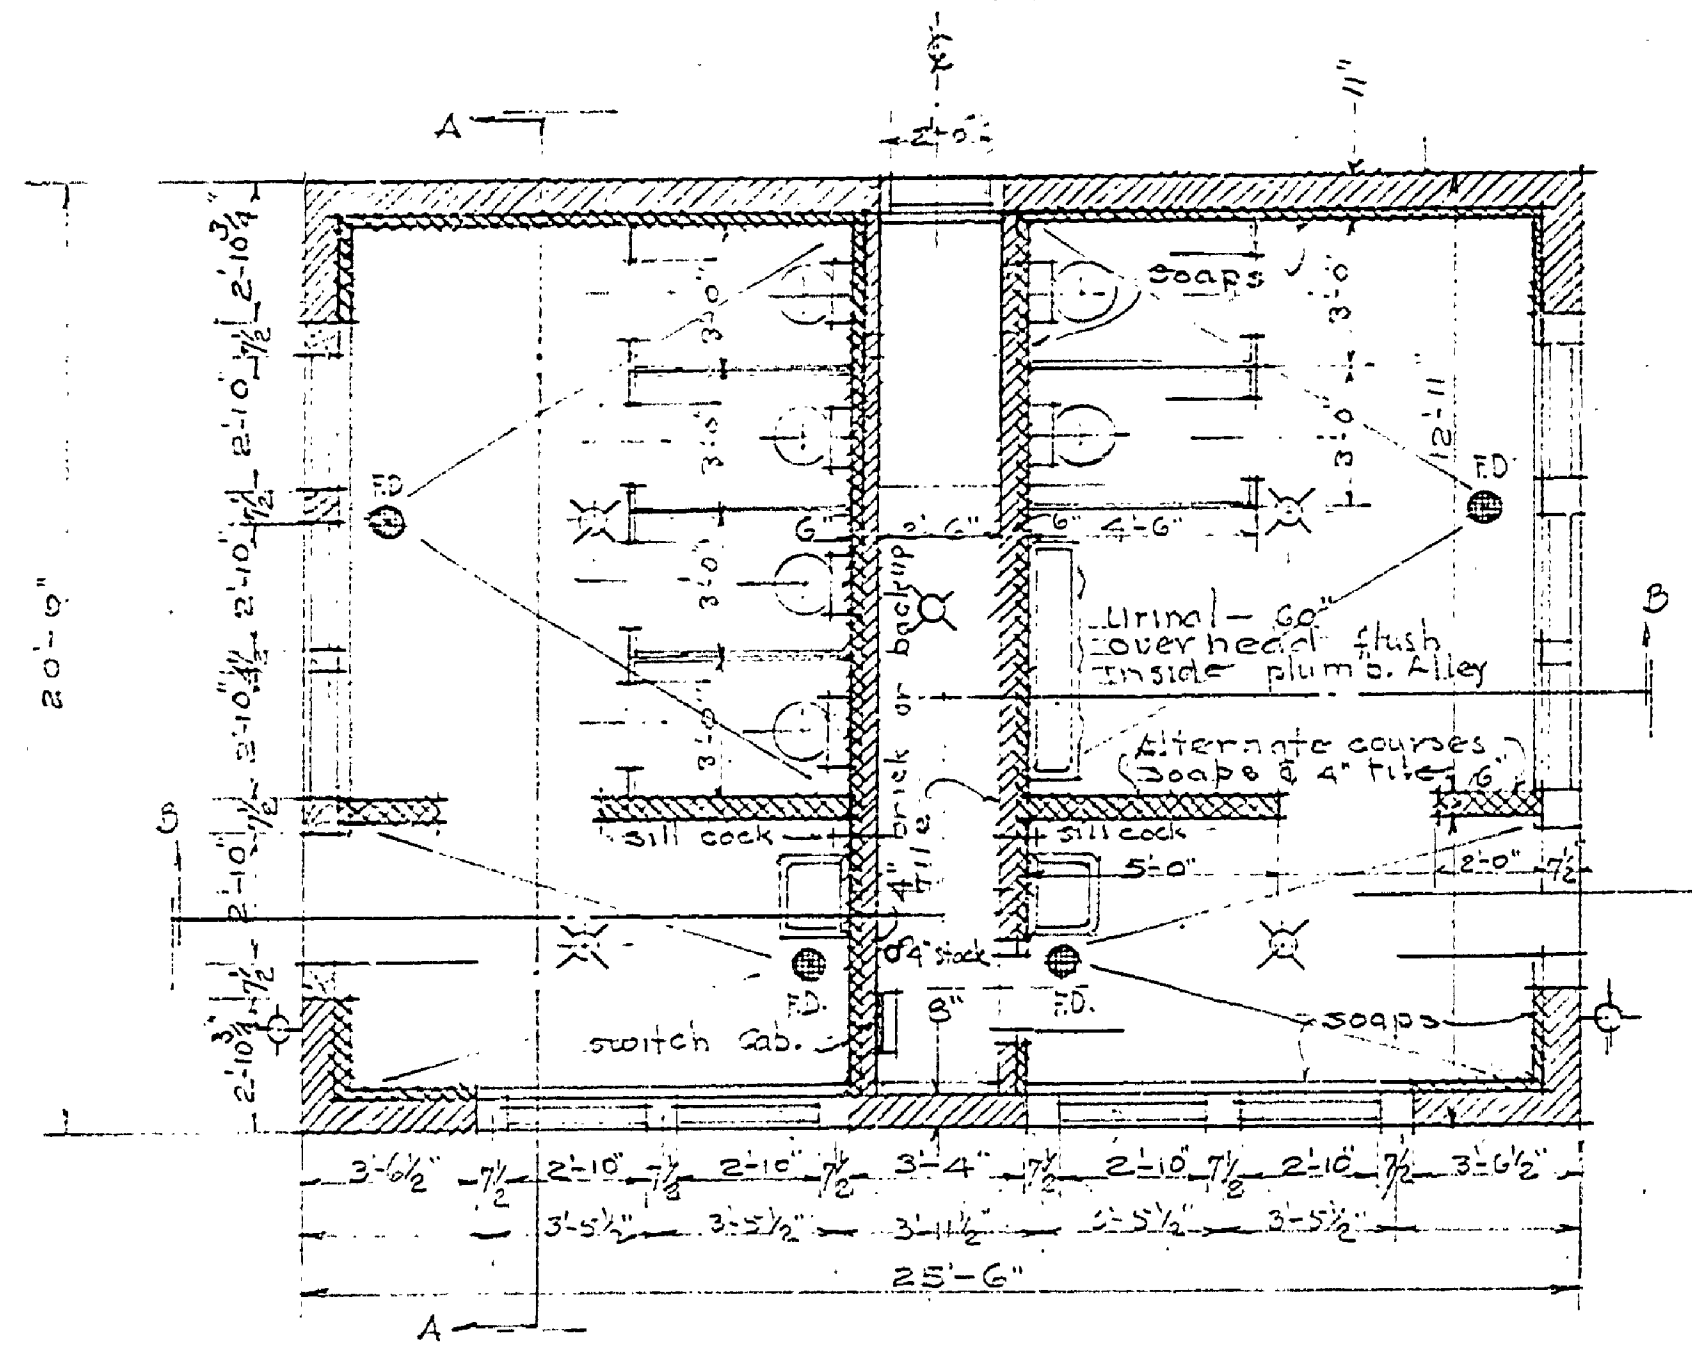 A
2'-0"
11"
2'-10¾"
7½
2'-10"
7½"
2'-10"
4½"
2'-10"
7½
2'-10"
7½
2'-10¾"
20'-0"
3'-0"
3'-0"
3'-0"
3'-0"
soaps
3'-0"
3'-0"
12'-11"
F.D
F.D
6"
2'-6"
6"
4'-6"
Urinal - 60"
overhead flush
Inside plumb. Alley
B
Alternate courses
soaps & 4" tile
6"
4" brick or backup
Tile
B
sill cock
sill cock
5'-0"
2'-0"
7½
4" stack
F.D.
8"
F.D.
switch Cab.
soaps
3'-6½"
7½
2'-10"
7½
2'-10"
7½
3'-4"
7½
2'-10"
7½
2'-10"
7½
3'-6½"
3'-5½"
3'-5½"
3'-11½"
3'-5½"
3'-5½"
25'-6"
A